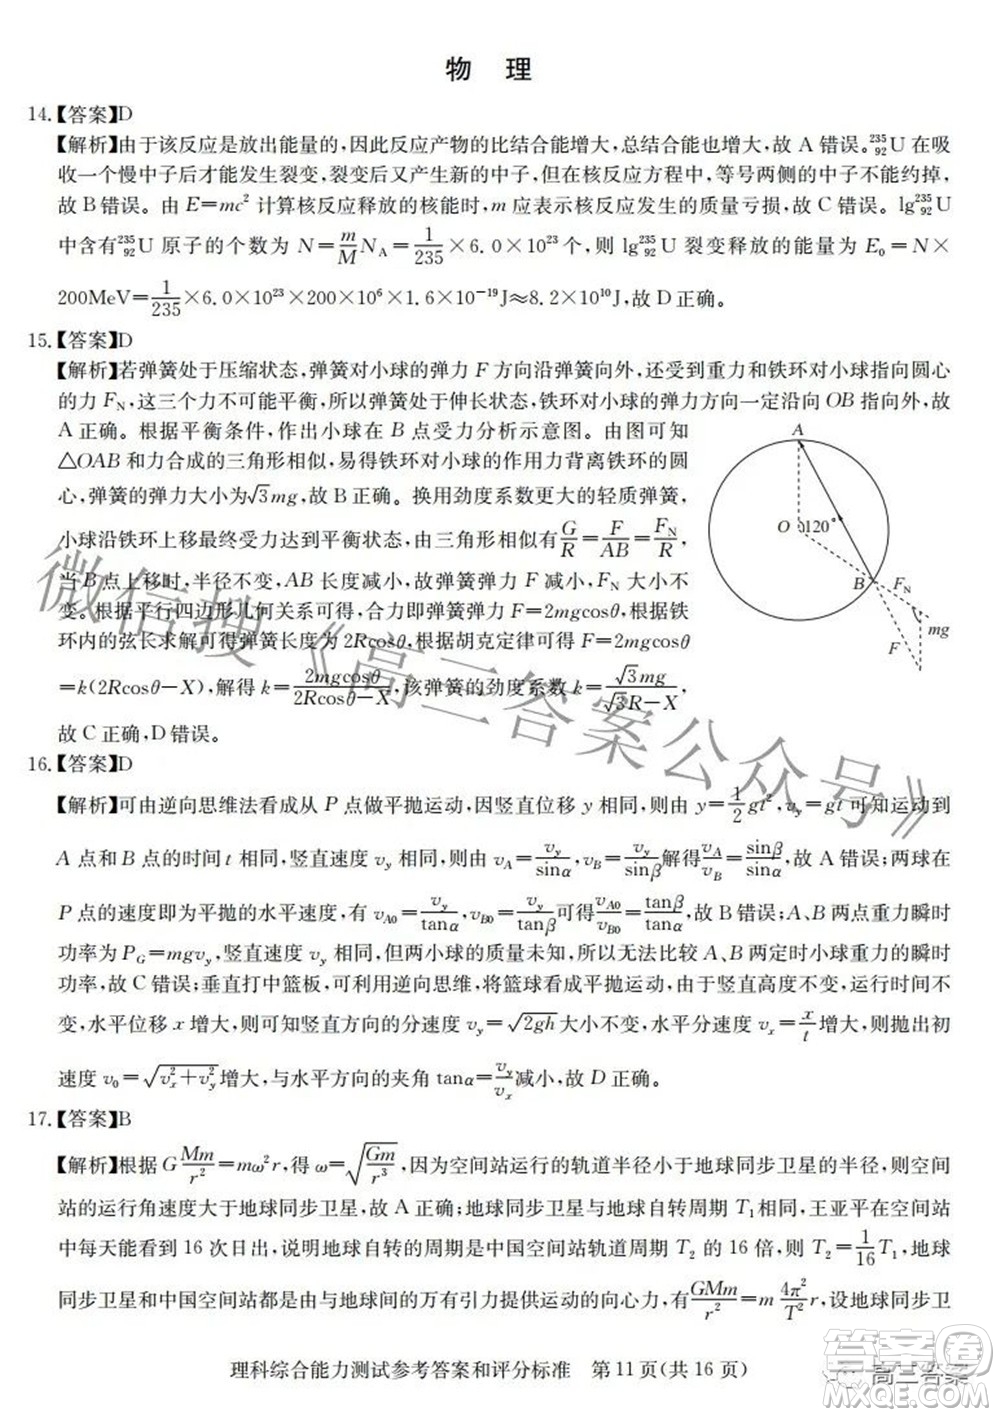 物　理
14.【答案】D
【解析】由于该反应是放出能量的,因此反应产物的比结合能增大,总结合能也增大,故 A 错误。²³⁵₉₂U 在吸
收一个慢中子后才能发生裂变,裂变后又产生新的中子,但在核反应方程中,等号两侧的中子不能约掉,
故 B 错误。由 E=mc² 计算核反应释放的核能时,m 应表示核反应发生的质量亏损,故 C 错误。1g²³⁵₉₂U
中含有²³⁵₉₂U 原子的个数为 N=m/M N_A=1/235×6.0×10²³个,则 1g²³⁵₉₂U 裂变释放的能量为 E₀=N×
200MeV=1/235×6.0×10²³×200×10⁶×1.6×10⁻¹⁹J≈8.2×10¹⁰J,故 D 正确。
15.【答案】D
【解析】若弹簧处于压缩状态,弹簧对小球的弹力 F 方向沿弹簧向外,还受到重力和铁环对小球指向圆心
的力 F_N,这三个力不可能平衡,所以弹簧处于伸长状态,铁环对小球的弹力方向一定沿向 OB 指向外,故
A 正确。根据平衡条件,作出小球在 B 点受力分析示意图。由图可知
△OAB 和力合成的三角形相似,易得铁环对小球的作用力背离铁环的圆
心,弹簧的弹力大小为√3mg,故 B 正确。换用劲度系数更大的轻质弹簧,
小球沿铁环上移最终受力达到平衡状态,由三角形相似有G/R=F/AB=F_N/R,
当 B 点上移时,半径不变,AB 长度减小,故弹簧弹力 F 减小,F_N 大小不
变。根据平行四边形几何关系可得,合力即弹簧弹力 F=2mgcosθ,根据铁
环内的弦长求解可得弹簧长度为 2Rcosθ,根据胡克定律可得 F=2mgcosθ
=k(2Rcosθ-X),解得 k=2mgcosθ/(2Rcosθ-X),该弹簧的劲度系数 k=√3mg/(√3R-X),
故 C 正确,D 错误。
A
O
120°
B
F_N
mg
F
16.【答案】D
【解析】可由逆向思维法看成从 P 点做平抛运动,因竖直位移 y 相同,则由 y=1/2 gt²,v_y=gt 可知运动到
A 点和 B 点的时间 t 相同,竖直速度 v_y 相同,则由 v_A=v_y/sinα,v_B=v_y/sinβ解得v_A/v_B=sinβ/sinα,故 A 错误;两球在
P 点的速度即为平抛的水平速度,有 v_A0=v_y/tanα,v_B0=v_y/tanβ可得v_A0/v_B0=tanβ/tanα,故 B 错误;A、B 两点重力瞬时
功率为 P_G=mgv_y,竖直速度 v_y 相同,但两个小球的质量未知,所以无法比较 A、B 两定时小球重力的瞬时
功率,故 C 错误;垂直打中篮板,可利用逆向思维,将篮球看成平抛运动,由于竖直高度不变,运行时间不
变,水平位移 x 增大,可知竖直方向的分速度 v_y=√2gh大小不变,水平分速度 v_x=x/t增大,则抛出初
速度 v₀=√(v_x²+v_y²)增大,与水平方向的夹角 tanα=v_y/v_x减小,故 D 正确。
17.【答案】B
【解析】根据 GMm/r²=mω²r,得 ω=√(Gm/r³),因为空间站运行的轨道半径小于地球同步卫星的半径,则空间
站的运行角速度大于地球同步卫星,故 A 正确;地球同步卫星与地球自转周期 T₁相同,王亚平在空间站
中每天能看到 16 次日出,说明地球自转的周期是中国空间站轨道周期 T₂ 的 16 倍,则 T₂=1/16 T₁,地球
同步卫星和中国空间站都是由与地球间的万有引力提供运动的向心力,有GMm/r²=m 4π²/T² r,设地球同步卫
理科综合能力测试参考答案和评分标准　第 11 页(共 16 页)
微信搜《高三答案公众号》
高三答案
MXQE.COM